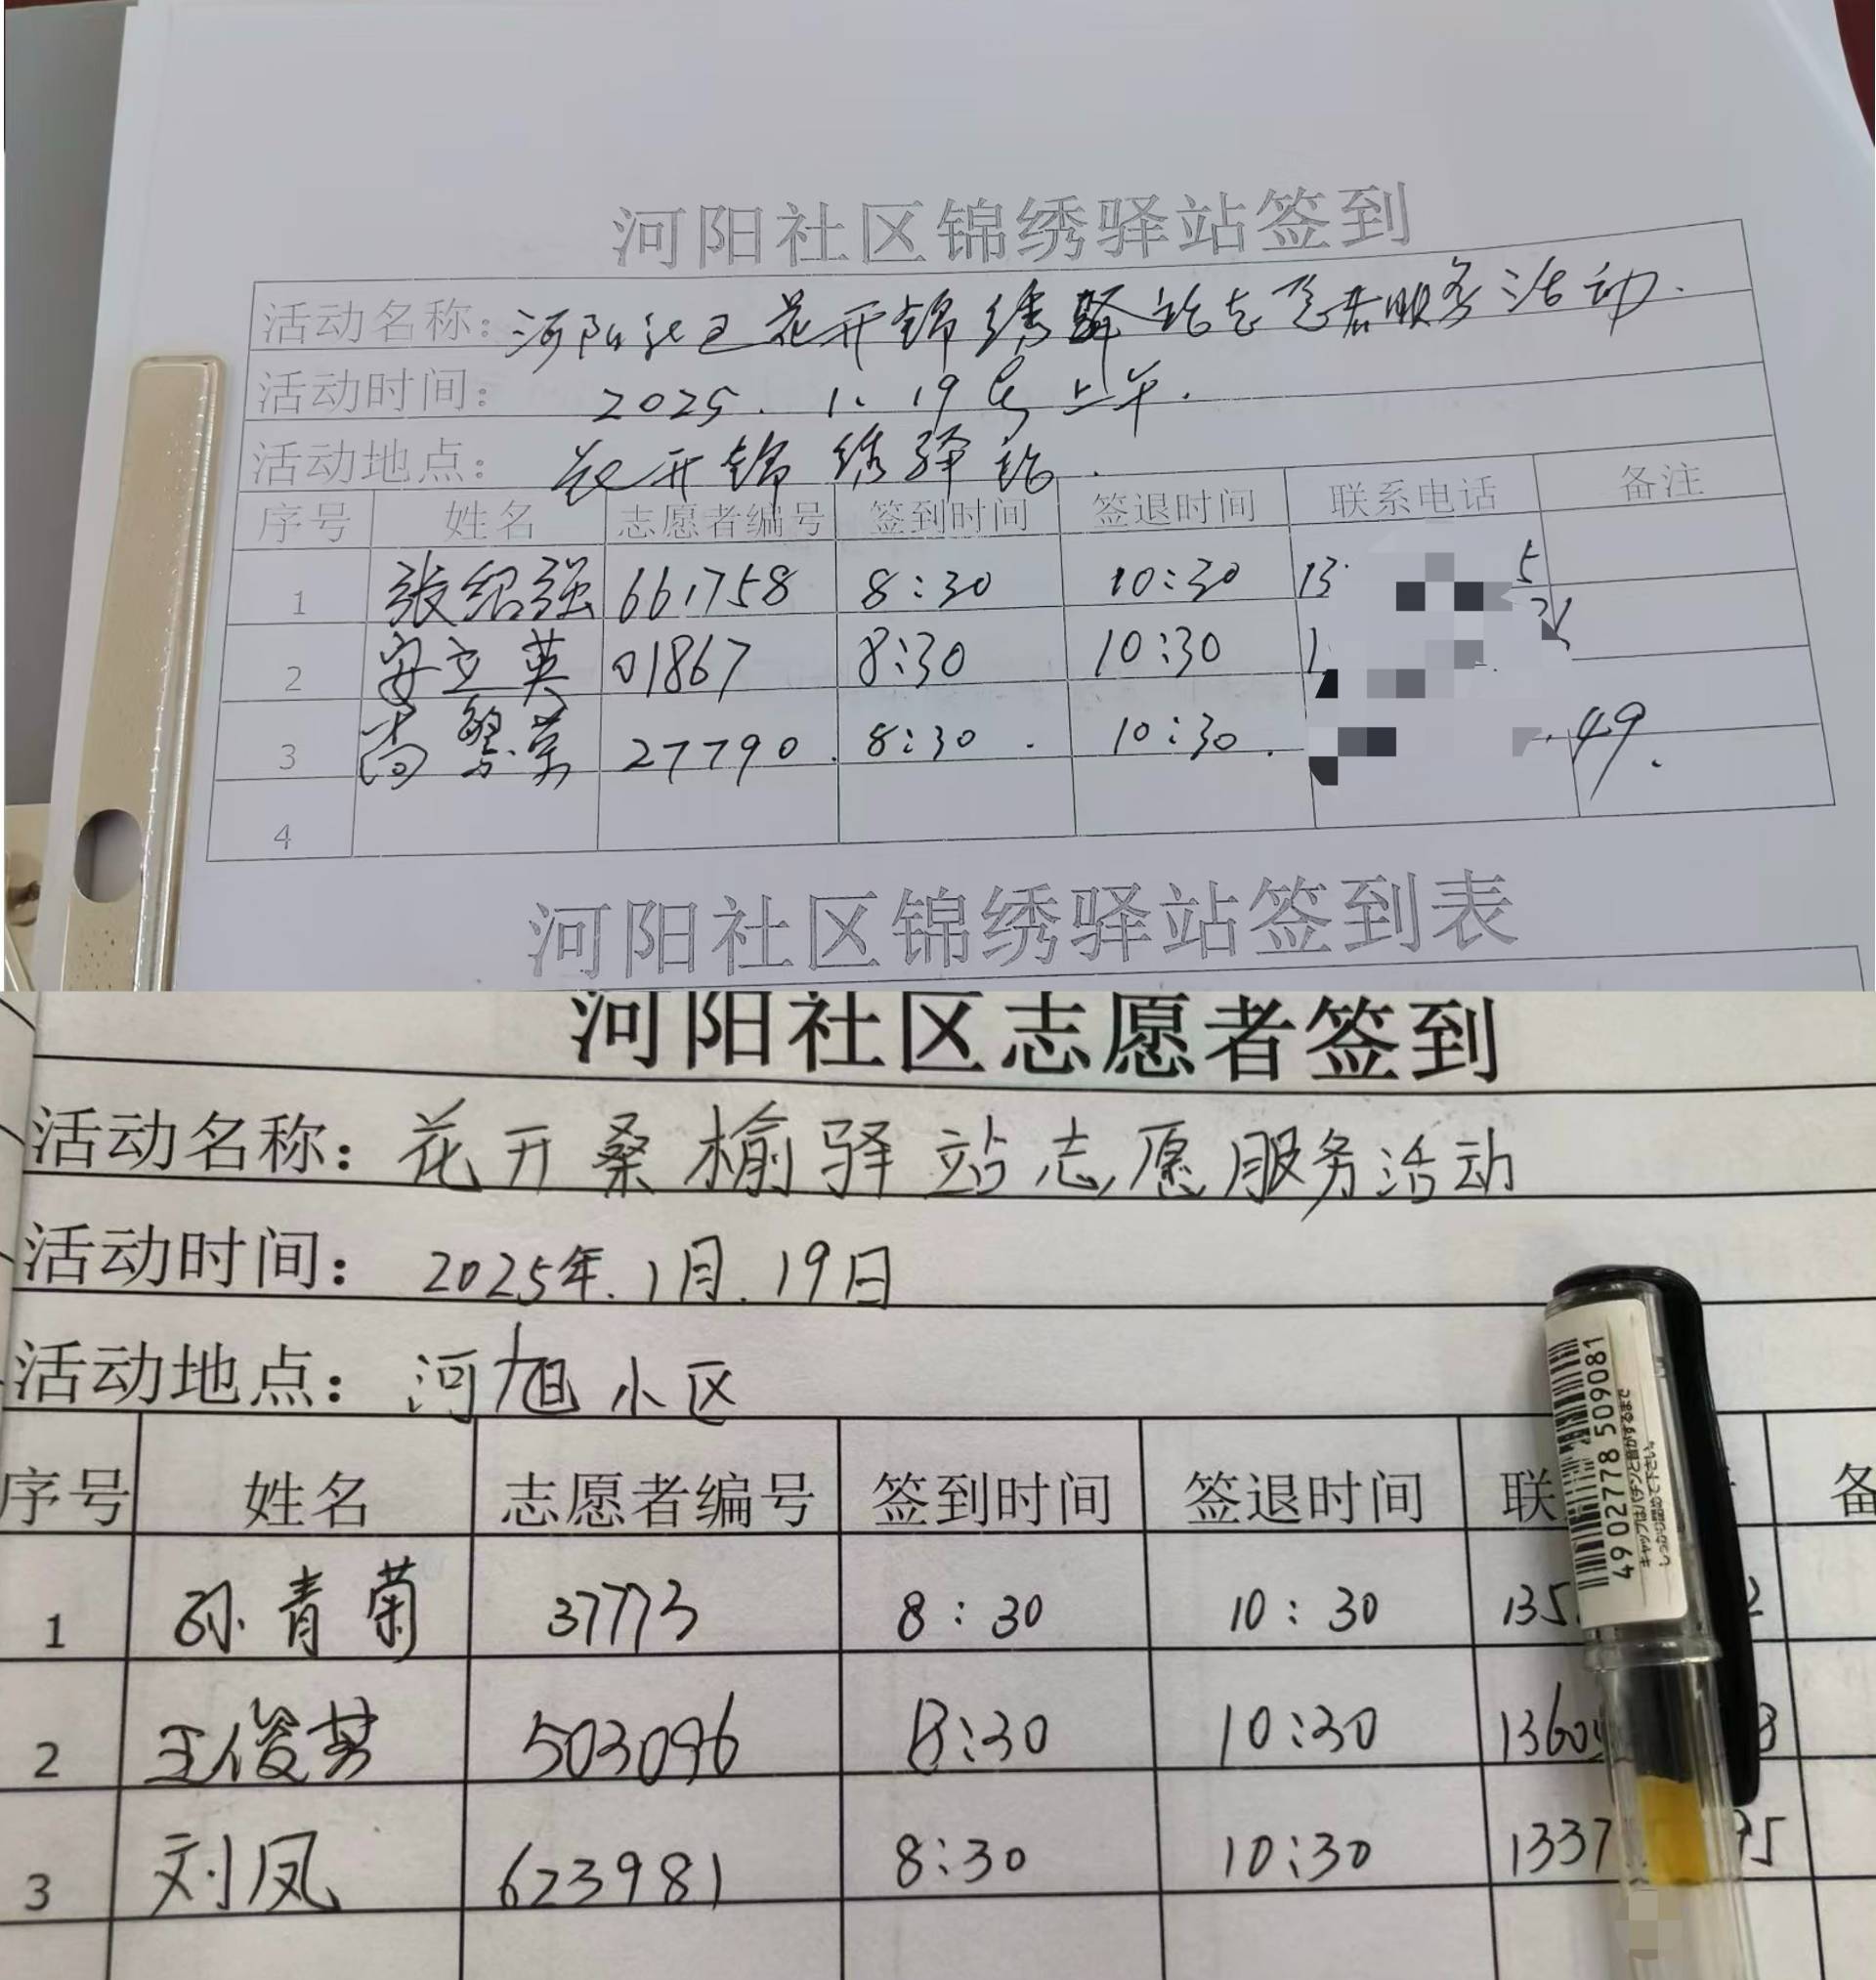 河阳社区锦绣驿站签到
活动名称：河阳社区花开锦绣驿站志愿者服务活动.
活动时间： 2025. 1. 19号上午.
活动地点： 花开锦绣驿站.
序号 姓名 志愿者编号 签到时间 签退时间 联系电话 备注
1 张绍强 661758 8:30 10:30 13 5
2 安立英 01867 8:30 10:30 1
3 高繁荣 27790. 8:30. 10:30. 49.
4
河阳社区锦绣驿站签到表
河阳社区志愿者签到
活动名称：花开桑榆驿站志愿服务活动
活动时间： 2025年.1月.19日
活动地点： 河旭小区
序号 姓名 志愿者编号 签到时间 签退时间 联 备
1 孙青菊 37773 8:30 10:30 135 2
2 王俊英 503096 8:30 10:30 1360 8
3 刘凤 623981 8:30 10:30 1337 95
4902778 509081
キャップはパチンと音がするまで
しっかり閉めて下さい。